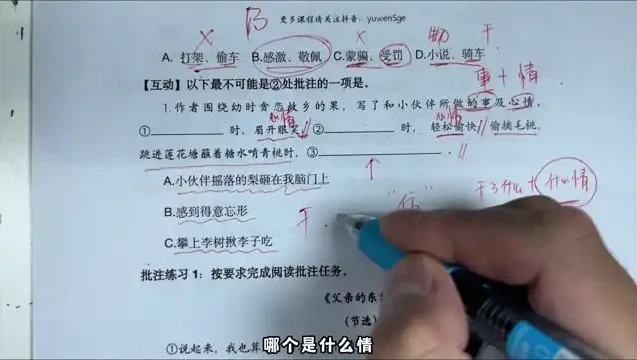 B 更多课程请关注抖音：yuwen5ge
A. 打架、偷车 B.感激、敬佩 C.蒙骗、受罚 D.小说、骑车
干
事+情
【互动】以下最不可能是②处批注的一项是。
1.作者围绕幼时贪恋故乡的果，写了和小伙伴所做的事及心情。
心情 心情
①时，眉开眼笑。②时，轻松愉快；偷摘毛桃、
跳进莲花塘蘸着糖水啃青桃时，③。
A.小伙伴摇落的梨砸在我脑门上
干了什么+什么情
B.感到得意忘形
干
C.攀上李树揪李子吃
批注练习1：按要求完成阅读批注任务。
《父亲的东
（节选）
①说起来，我也算
哪个是什么情